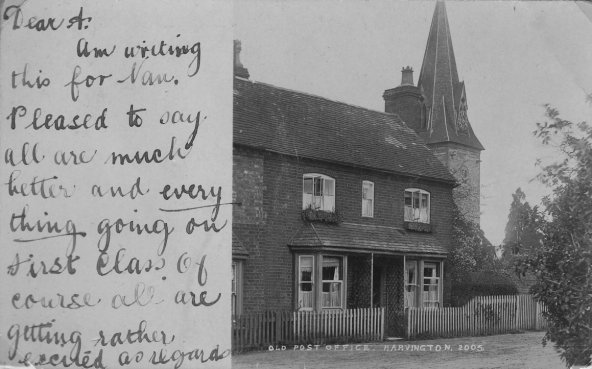 Dear A:
Am writing
this for Nan.
Pleased to say
all are much
better and every
thing going on
first Class. Of
course all are
getting rather
excited as regards
OLD POST OFFICE. HARVINGTON. 2005.